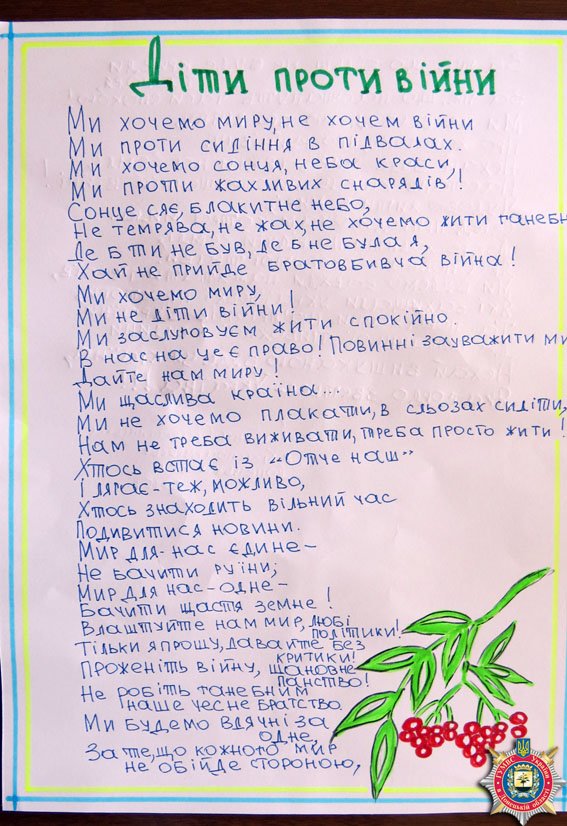 Діти проти війни
Ми хочемо миру, не хочем війни
Ми проти сидіння в підвалах.
Ми хочемо сонця, неба краси,
Ми проти жахливих снарядів!
Сонце сяє, блакитне небо,
Не темрява, не жах, не хочемо жити ганебн
Де б ти не був, де б не була я,
Хай не прийде братовбивча війна!
Ми хочемо миру,
Ми не діти війни!
Ми заслуговуєм жити спокійно.
В нас на це є право! Повинні зауважити ми
Дайте нам миру!
Ми щаслива країна....
Ми не хочемо плакати, в сльозах сидіти,
Нам не треба виживати, треба просто жити!
Хтось встає із "Отче наш"
І лягає-теж, можливо,
Хтось знаходить вільний час
Подивитися новини.
Мир для-нас єдине-
Не бачити руїни;
Мир для нас-одне-
Бачити щастя земне!
Влаштуйте нам мир, любі
політики!
Тільки я прошу, давайте без
критики!
Проженіть війну, шановне
панство!
Не робіть ганебним
наше чесне братство.
Ми будемо вдячні за
одне,
За те, що кожного мир
не обійде стороною,
ГУМВС України
в Донецькій області